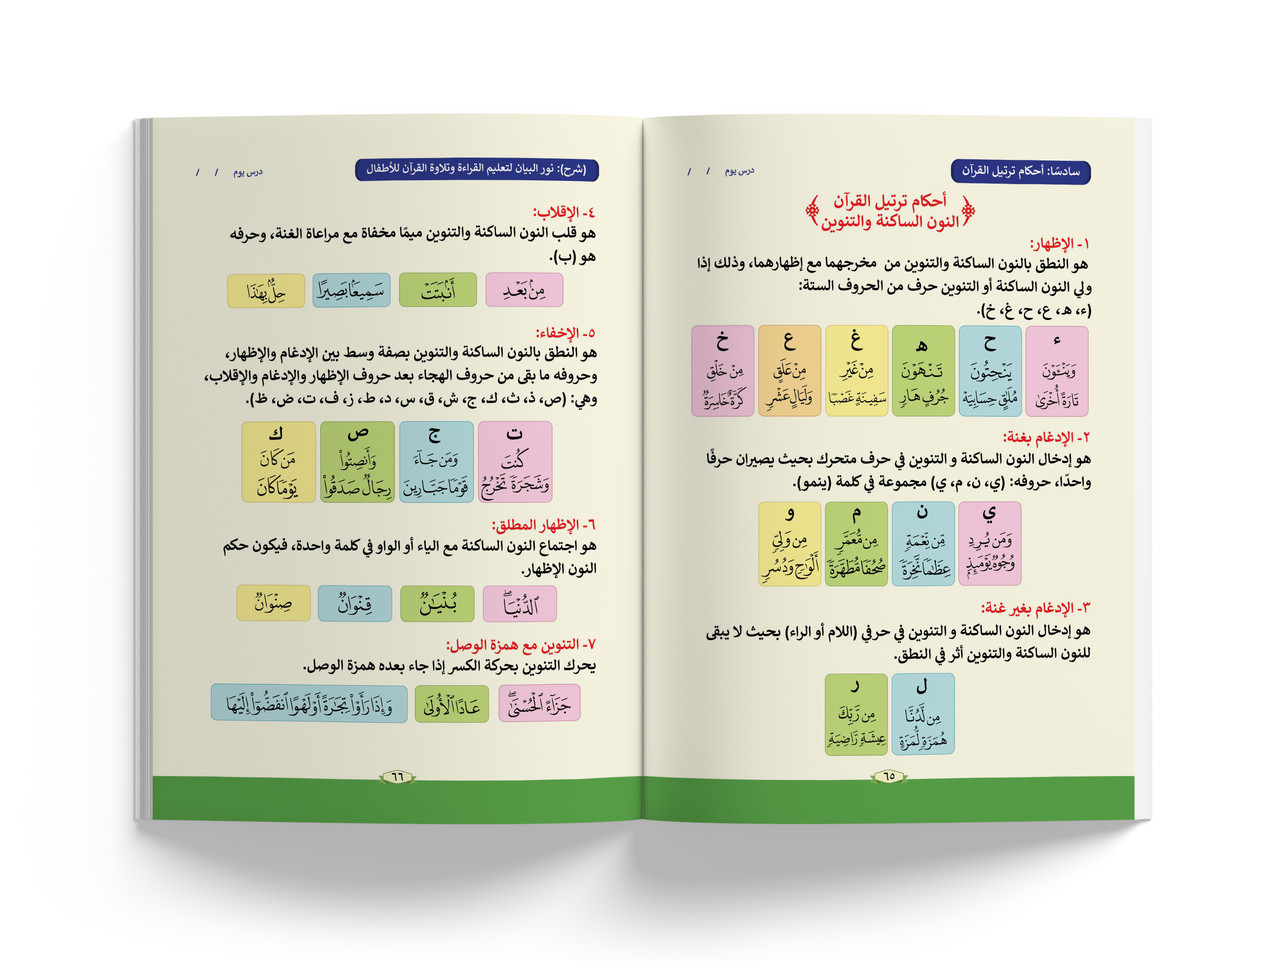 سادسًا: أحكام ترتيل القرآن
درس يوم / /
أحكام ترتيل القرآن
النون الساكنة والتنوين
١- الإظهار:
هو النطق بالنون الساكنة والتنوين من مخرجهما مع إظهارهما، وذلك إذا
ولي النون الساكنة أو التنوين حرف من الحروف الستة:
(ء، هـ، ع، ح، غ، خ).
ء ح هـ غ ع خ
وَيَنْـَٔوْنَ يَنْحِتُونَ تَنْهَوْنَ مِنْ غَيْرِ مِنْ عَلَقٍ مِنْ خَلَقِ
تَارَةً أُخْرَىٰ مُلَٰقٍ حِسَابِيَهْ جُرُفٍ هَارٍ سَفِينَةٍ غَصْبًا وَلَيَالٍ عَشْرٍ كَرَّةٌ خَاسِرَةٌ
٢- الإدغام بغنة:
هو إدخال النون الساكنة و التنوين في حرف متحرك بحيث يصيران حرفًا
واحدًا، حروفه: (ي، ن، م، ي) مجموعة في كلمة (ينمو).
ي ن م و
وَمَن يُرِدِ مِّن نِّعْمَةٍ مِن مُّعَمَّرٍ مِن وَلِيٍّ
وُجُوهٌ يَوْمَئِذٍ عِظَٰمًا نَّخِرَةً صُحُفًا مُّطَهَّرَةً أَلْوَٰحٍ وَدُسُرٍ
٣- الإدغام بغير غنة:
هو إدخال النون الساكنة و التنوين في حرفي (اللام أو الراء) بحيث لا يبقى
للنون الساكنة والتنوين أثر في النطق.
ل ر
مِن لَّدُنَّا مِن رَّبِّكَ
هُمَزَةٍ لُّمَزَةٍ عِيشَةٍ رَّاضِيَةٍ
٦٥
(شرح): نور البيان لتعليم القراءة وتلاوة القرآن للأطفال
درس يوم / /
٤- الإقلاب:
هو قلب النون الساكنة والتنوين ميمًا مخفاة مع مراعاة الغنة، وحرفه
هو (ب).
مِنۢ بَعْدِ أَنۢبَتَتْ سَمِيعًۢا بَصِيرًا حِلٌّۢ بِهَٰذَا
٥- الإخفاء:
هو النطق بالنون الساكنة والتنوين بصفة وسط بين الإدغام والإظهار،
وحروفه ما بقى من حروف الهجاء بعد حروف الإظهار والإدغام والإقلاب،
وهي: (ص، ذ، ث، ك، ج، ش، ق، س، د، ط، ز، ف، ت، ض، ظ).
ت ج ص ك
كُنتَ وَمَن جَآءَ وَأَنصِتُوا۟ مَن كَانَ
وَشَجَرَةً تَخْرُجُ قَوْمًا جَبَّارِينَ رِجَالٌ صَدَقُوا۟ يَوْمًا كَانَ
٦- الإظهار المطلق:
هو اجتماع النون الساكنة مع الياء أو الواو في كلمة واحدة، فيكون حكم
النون الإظهار.
الدُّنْيَا بُنْيَٰنٌ قِنْوَانٌ صِنْوَانٌ
٧- التنوين مع همزة الوصل:
يحرك التنوين بحركة الكسر إذا جاء بعده همزة الوصل.
جَزَآءً ٱلْحُسْنَىٰ عَادًا ٱلْأُولَىٰ وَإِذَا رَأَوْا۟ تِجَٰرَةً أَوْ لَهْوًا ٱنفَضُّوٓا۟ إِلَيْهَا
٦٦